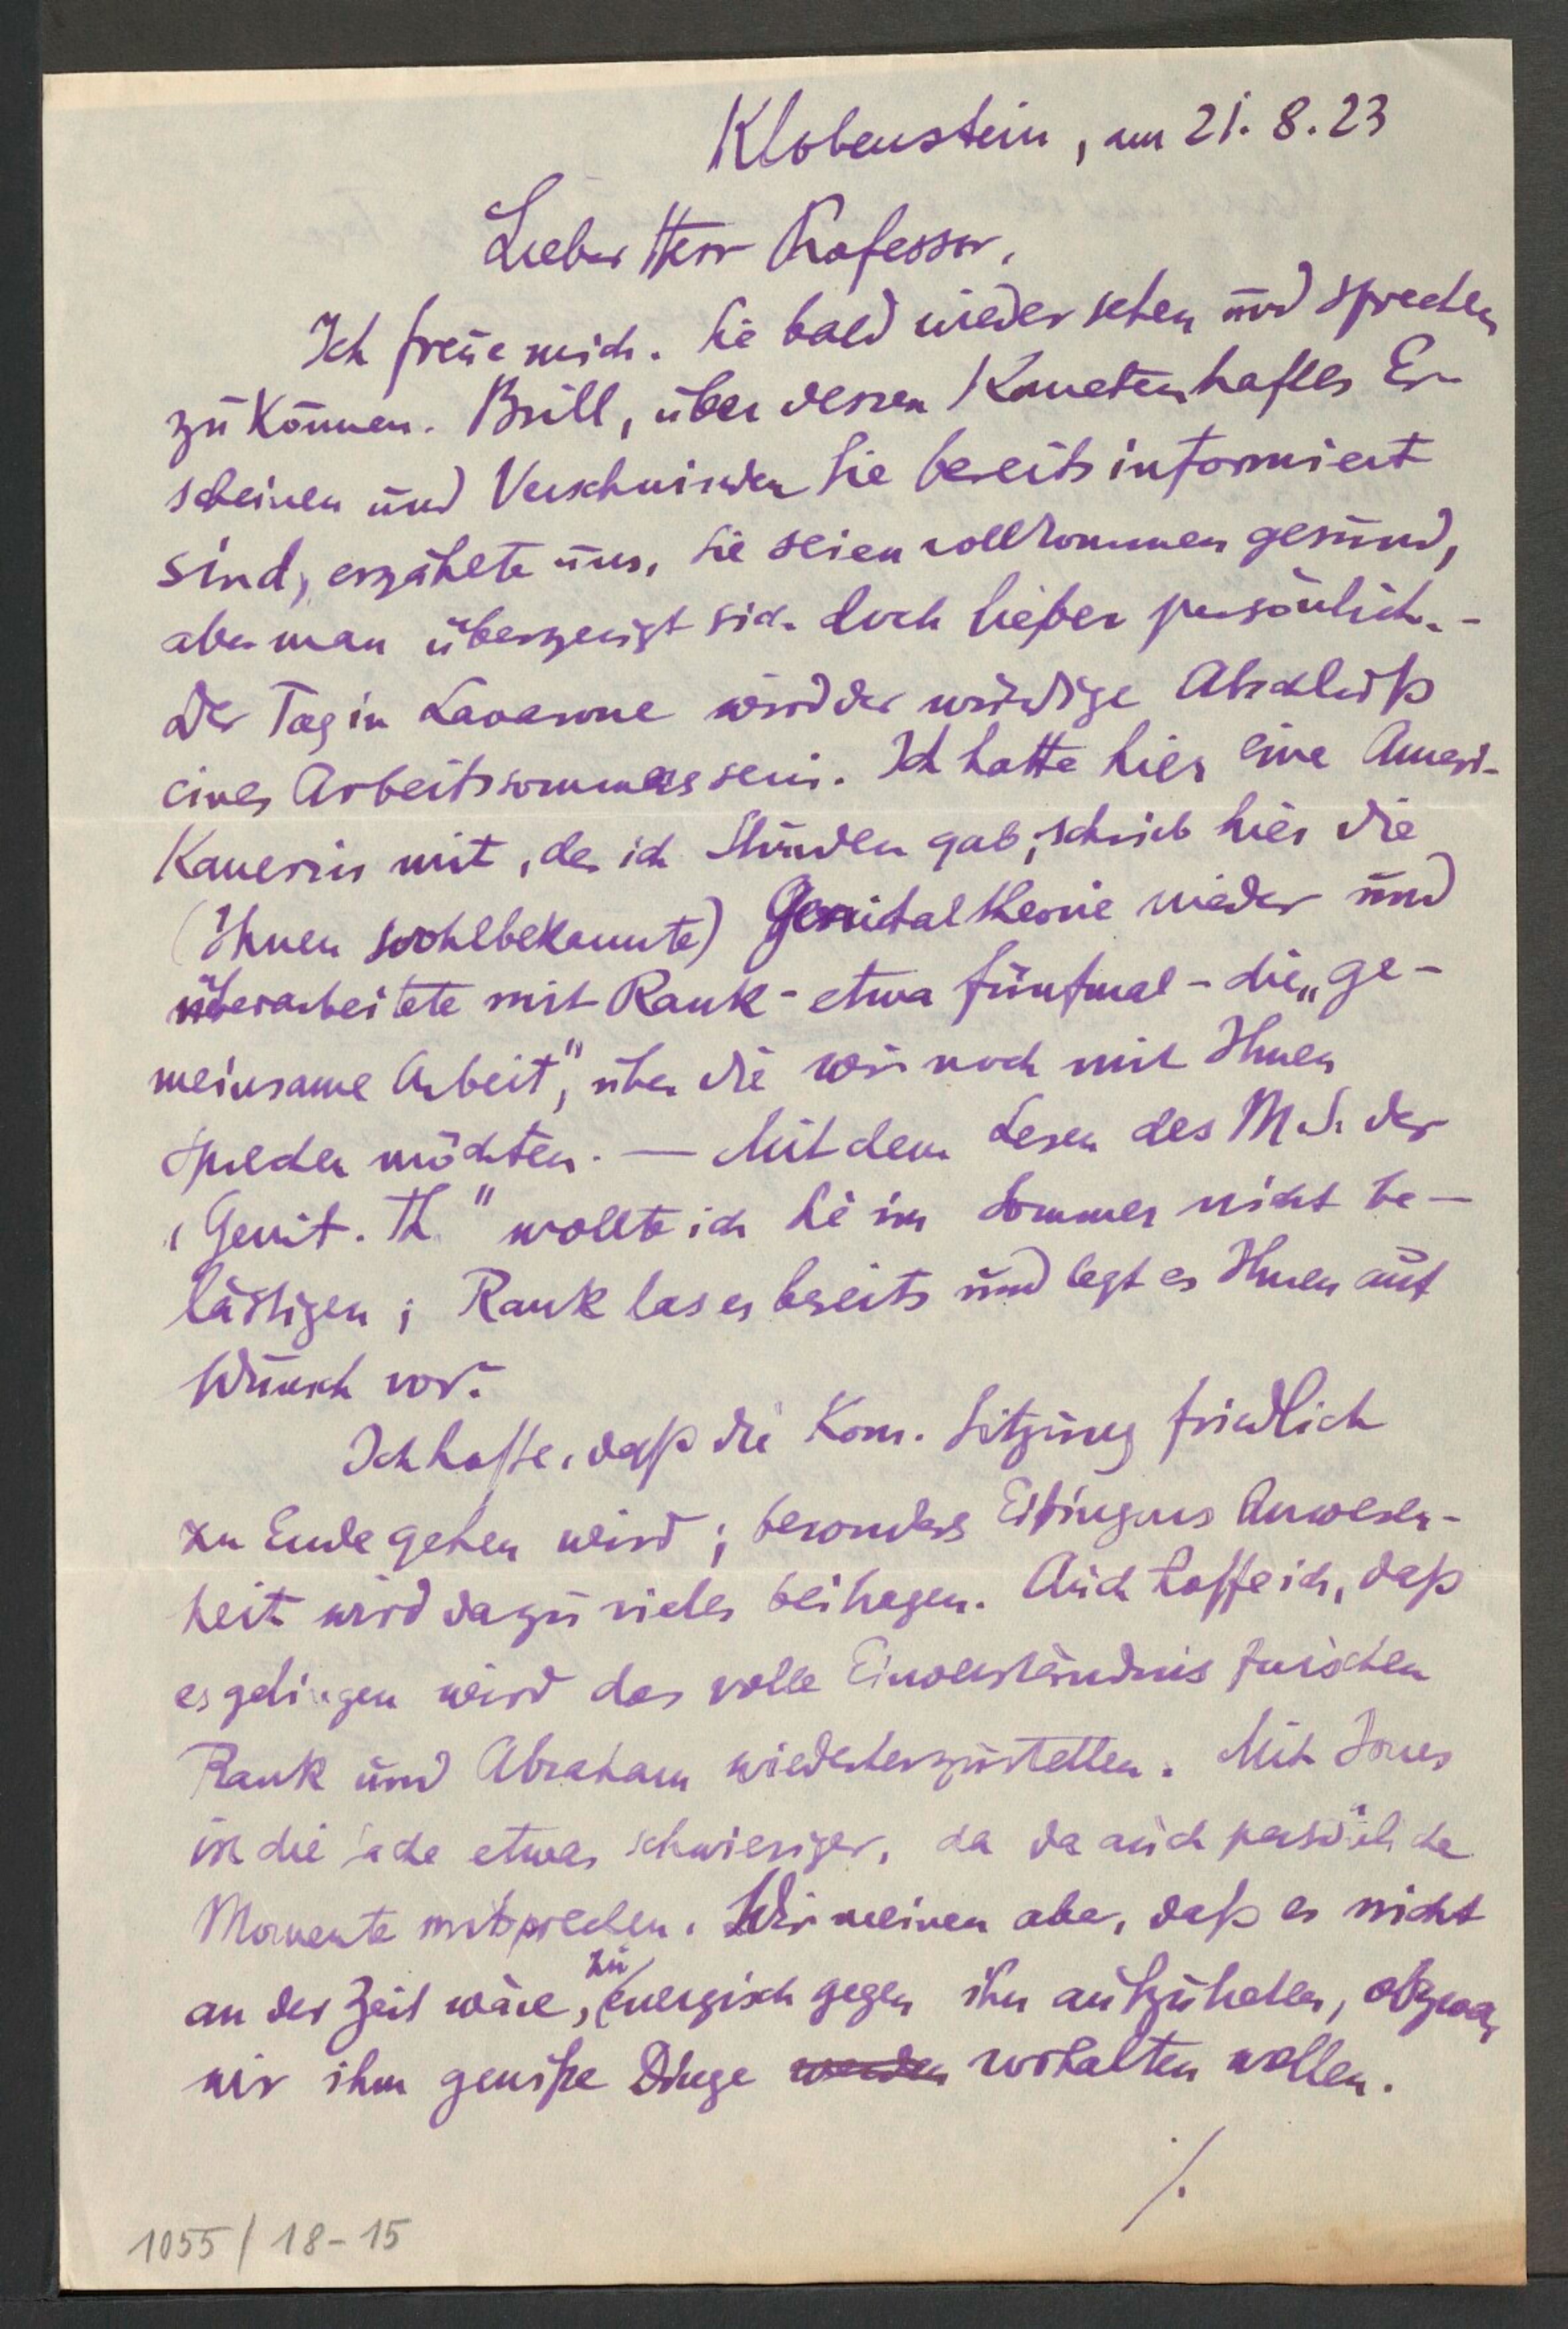 Klobenstein, am 21. 8. 23
Lieber Herr Professor,
Ich freue mich, Sie bald wieder sehen und sprechen
zu können. Brill, über dessen Kometenhaftes Er-
scheinen und Verschwinden Sie bereits informiert
sind, erzählte uns, Sie seien vollkommen gesund,
aber man überzeugt sich doch lieber persönlich. -
Der Tag in Lavarone wird der würdige Abschluß
eines Arbeitssommers sein. Ich hatte hier eine Ameri-
Kanerin mit, der ich Stunden gab, schrieb hier die
(Ihnen wohlbekannte) Genitaltheorie nieder und
überarbeitete mit Rank - etwa fünfmal - die „ge-
meinsame Arbeit", über die wir noch mit Ihnen
sprechen möchten. — Mit dem Lesen des M.S. der
„Genit. Th." wollte ich Sie im Sommer nicht be-
lästigen; Rank las es bereits und legt es Ihnen auf
Wunsch vor.
Ich hoffe, daß die Kom. Sitzung friedlich
zu Ende gehen wird; besonders Eitingons Anwesen-
heit wird dazu vieles beitragen. Auch hoffe ich, daß
es gelingen wird das volle Einverständnis zwischen
Rank und Abraham wiederherzustellen. Mit Jones
ist die Sache etwas schwieriger, da da auch persönliche
Momente mitsprechen. Wir meinen aber, daß es nicht
an der Zeit wäre, zu energisch gegen ihn aufzutreten, obzwar
wir ihm gewiße Dinge werden vorhalten wollen.
/.
1055/18-15